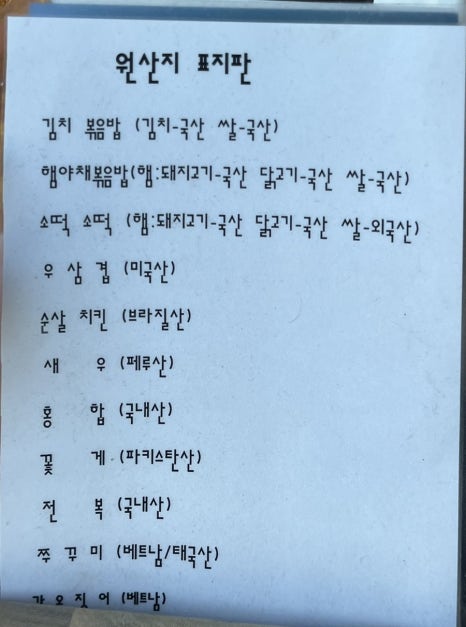 원산지 표지판
김치 볶음밥 (김치-국산 쌀-국산)
햄야채볶음밥(햄:돼지고기-국산 닭고기-국산 쌀-국산)
소떡 소떡 (햄:돼지고기-국산 닭고기-국산 쌀-외국산)
우 삼 겹 (미국산)
순살 치킨 (브라질산)
새 우 (페루산)
홍 합 (국내산)
꽃 게 (파키스탄산)
전 복 (국내산)
쭈 꾸 미 (베트남/태국산)
갑 오 징 어 (베트남)